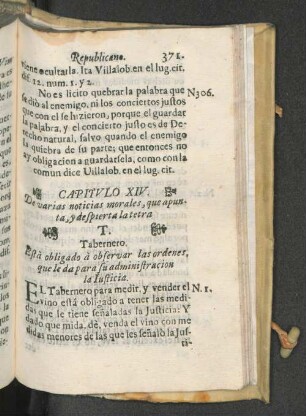 Republicana. 371.
viene ocultarla. Ita Villalob. en el lug. cit.
dif. 12. num. 1. y 2.
No es licito quebrar la palabra que N306.
se diò al enemigo, ni los conciertos justos
que con el se hizieron, porque el guardar
la palabra, y el concierto justo es de De-
recho natural, salvo quando el enemigo
la quiebra de su parte; que entonces no
ay obligacion a guardarsela, como con la
comun dice Villalob. en el lug. cit.
CAPITVLO XIV.
De varias noticias morales, que apun-
ta, y despierta la letra
T.
Tabernero.
Està obligado à observar las ordenes,
que le da para su administracion
la Iusticia.
EL Tabernero para medir, y vender el N. 1.
vino està obligado a tener las medi-
das que le tiene señaladas la Justicia: Y
dado que mida, dè, venda el vino con me-
didas menores de las que les señalò la Jus-
ti-